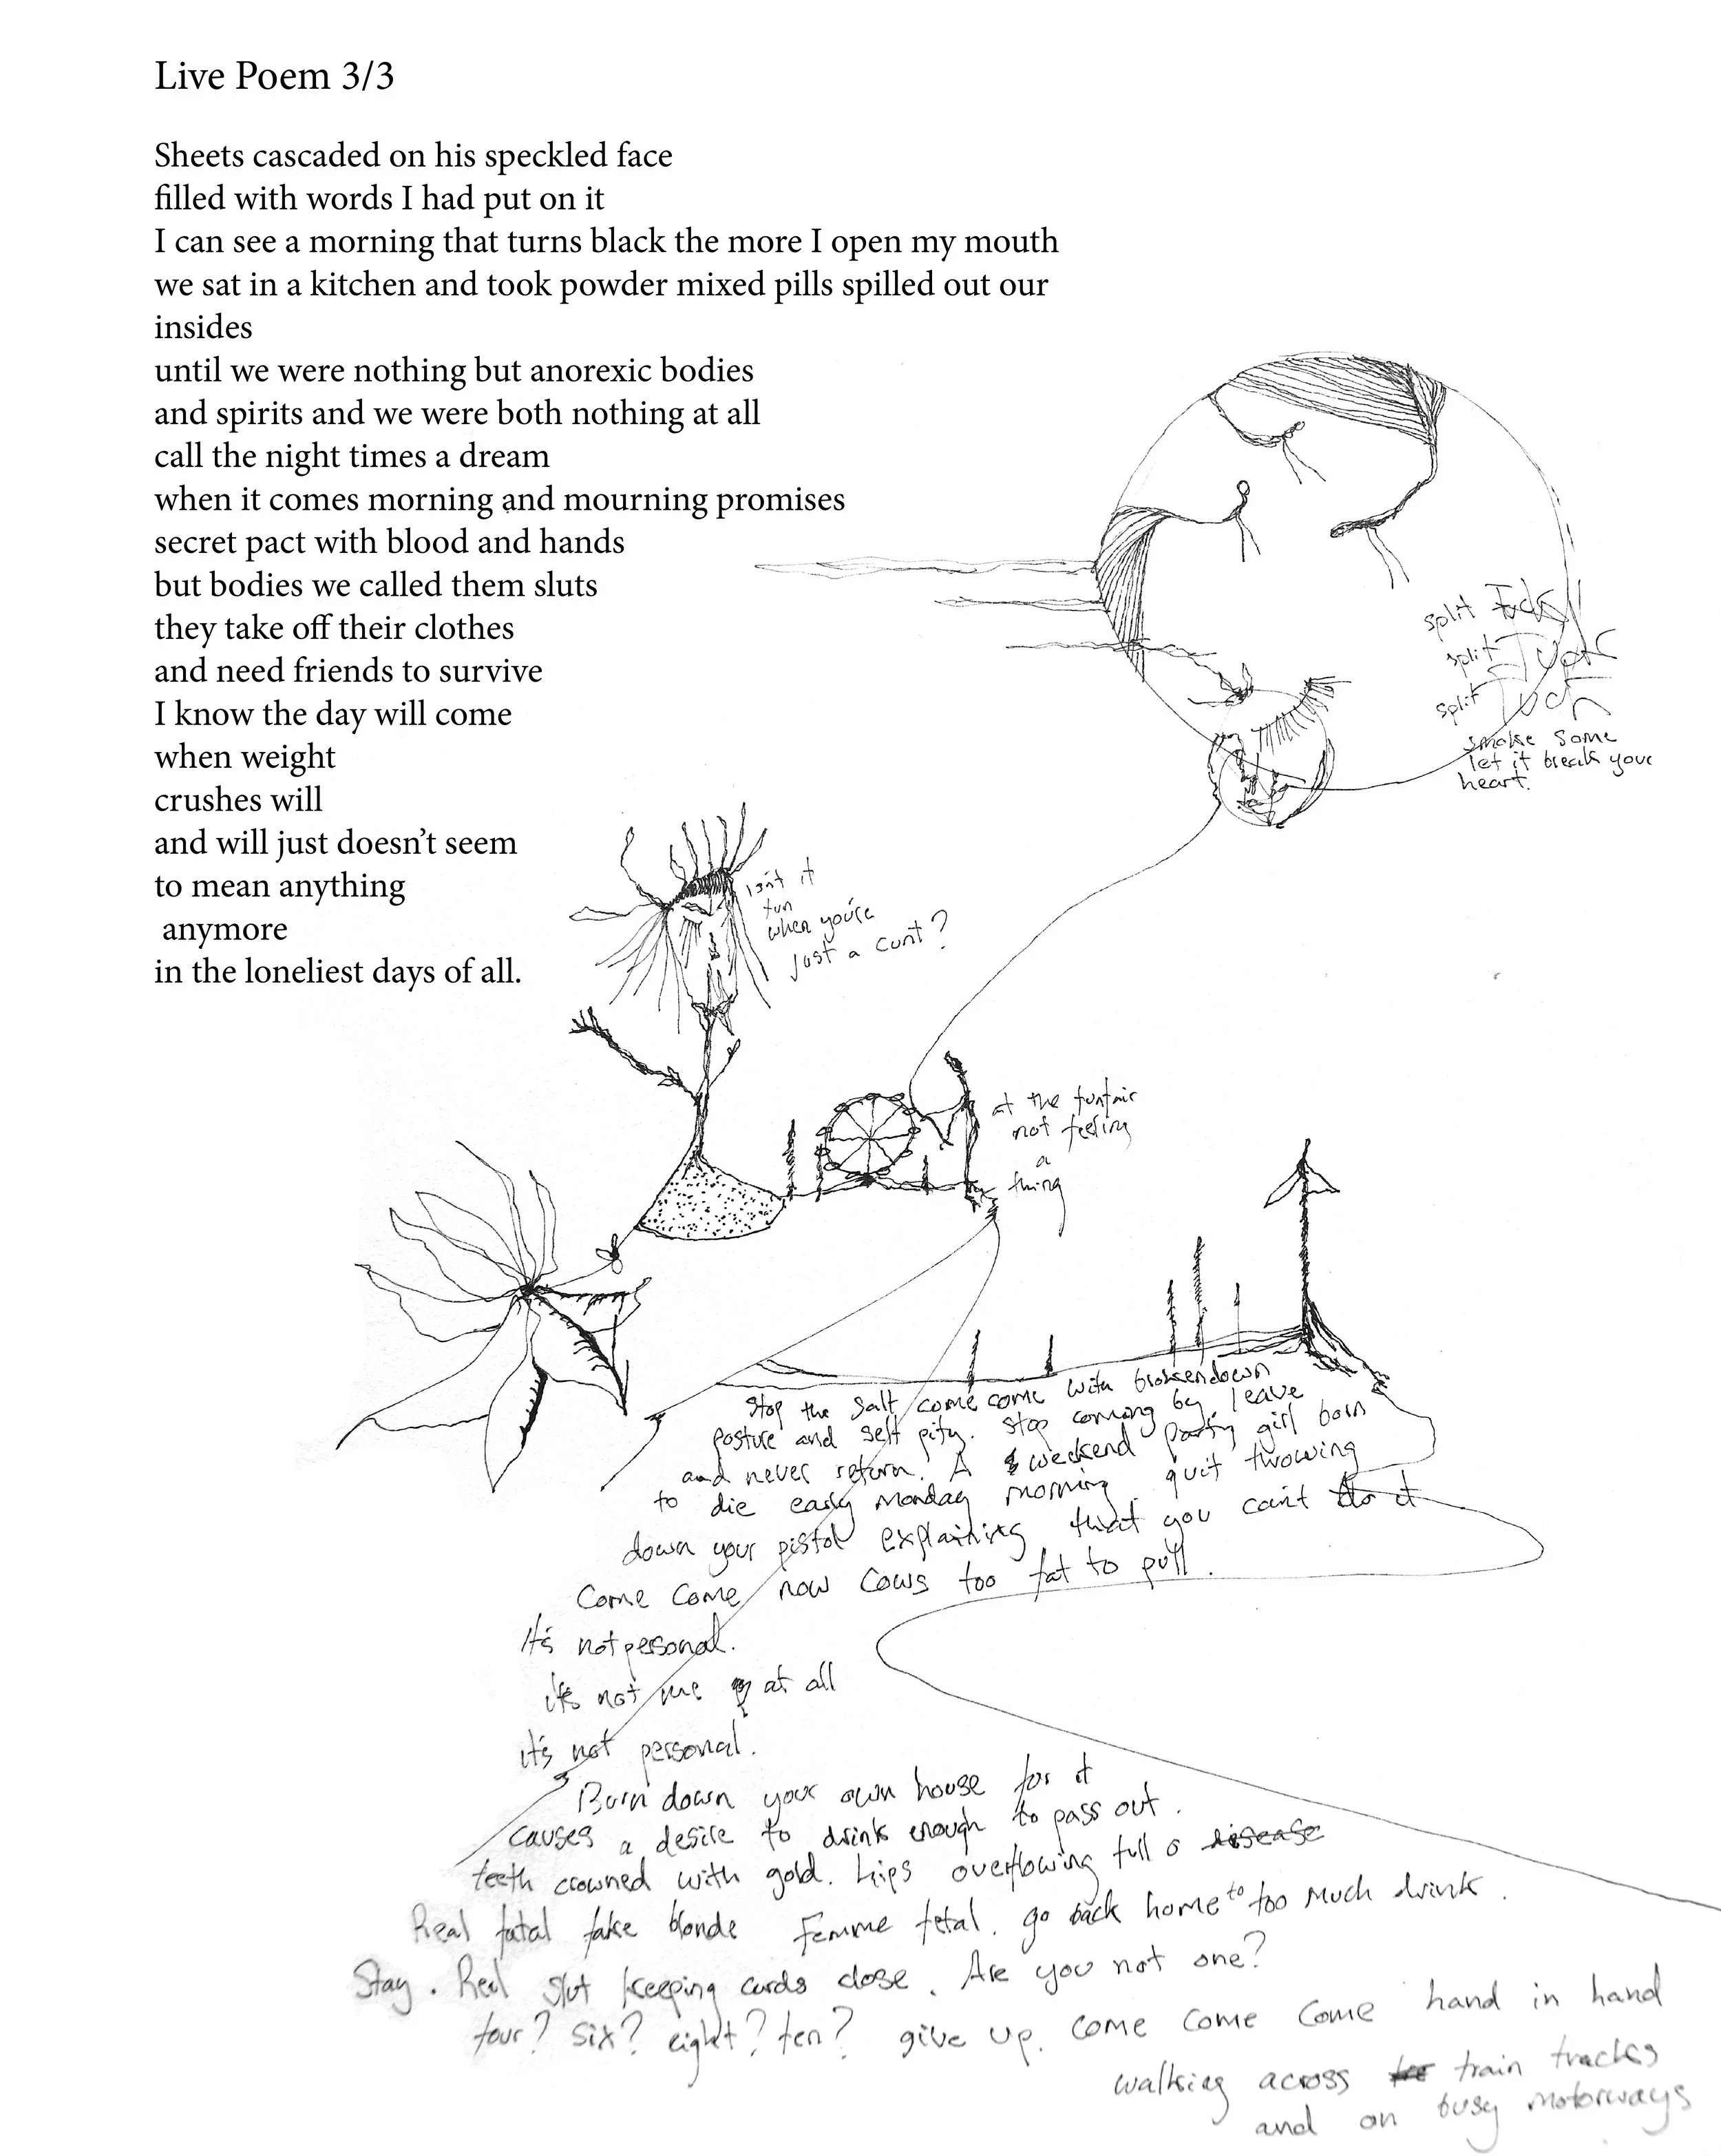 Live Poem 3/3
Sheets cascaded on his speckled face
filled with words I had put on it
I can see a morning that turns black the more I open my mouth
we sat in a kitchen and took powder mixed pills spilled out our
insides
until we were nothing but anorexic bodies
and spirits and we were both nothing at all
call the night times a dream
when it comes morning and mourning promises
secret pact with blood and hands
but bodies we called them sluts
they take off their clothes
and need friends to survive
I know the day will come
when weight
crushes will
and will just doesn’t seem
to mean anything
anymore
in the loneliest days of all.
split
split
split
smoke some
let it break your
heart.
isn't it
fun
when you're
just a cunt?
at the funfair
not feeling
a
thing
Stop the salt come come with brokendown
posture and self pity. Stop coming by, leave
and never return. A weekend party girl born
to die early Monday morning. quit throwing
down your pistol explaining that you can't do it
Come Come now Cows too fat to pull.
It's not personal.
it's not me at all
it's not personal.
Burn down your own house for it
causes a desire to drink enough to pass out.
teeth crowned with gold. Lips overflowing full o disease
Real fatal fake blonde Femme fetal. go back home to too much drink.
Stay. Real slut keeping cards close. Are you not one?
four? six? eight? ten? give up. come come come hand in hand
walking across train tracks
and on busy motorways